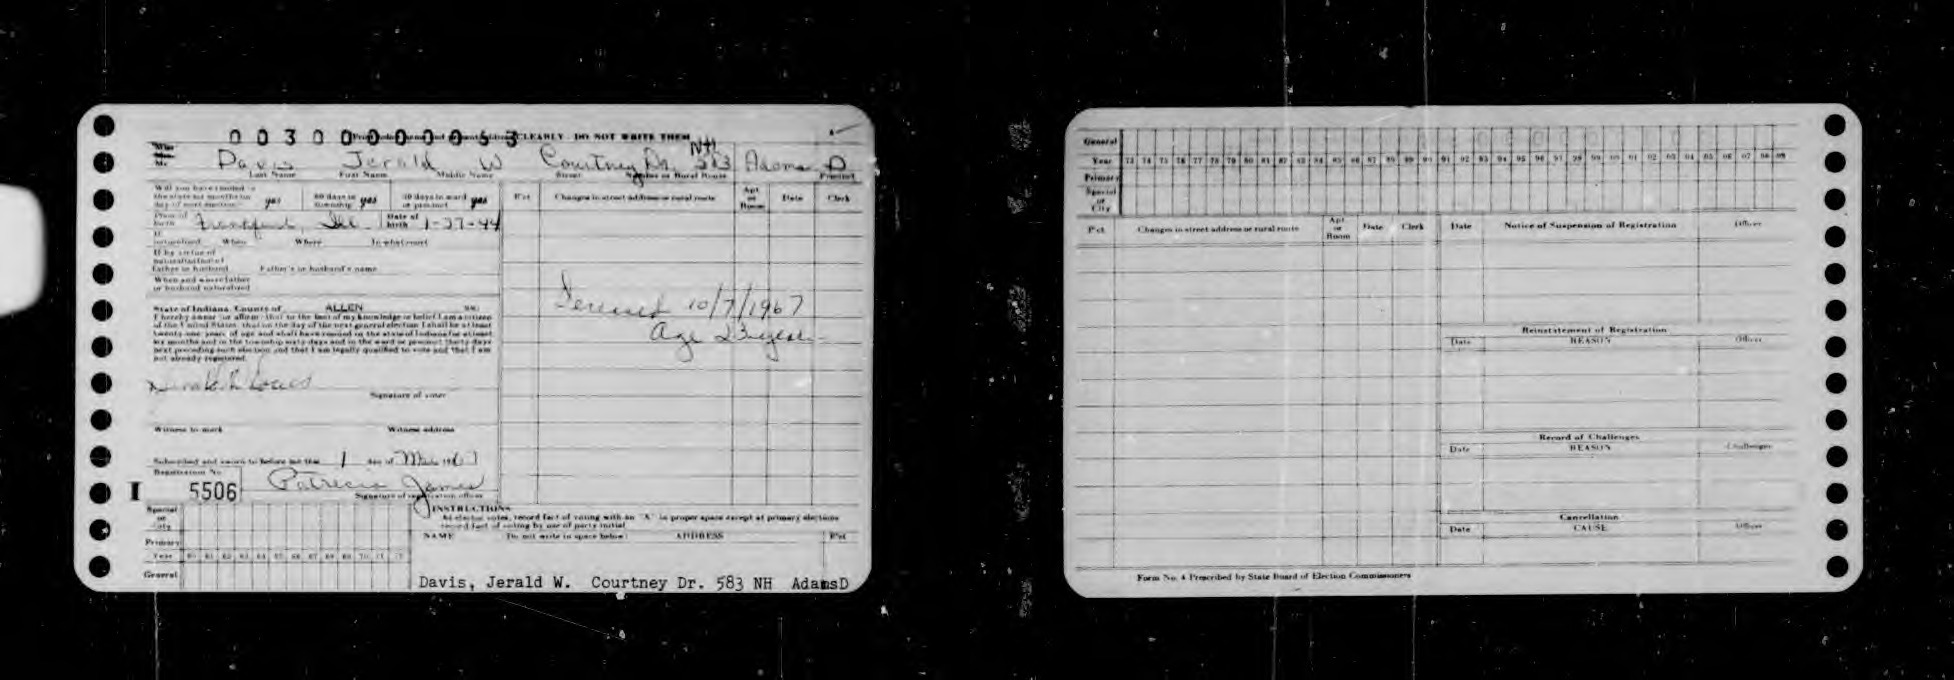 003000000053
CLEARLY - DO NOT WRITE THEM
Davis Jerald W Courtney Dr. 583 NH Adams D
Last Name First Name Middle Name Street Number or Rural Route Precinct
yes 60 days in township yes 30 days in ward or precinct yes
Place of birth Frankfort, Ill. Date of birth 1-27-44
If naturalized When Where In what court
If by virtue of naturalization of father or husband Father's or husband's name
When and where father or husband naturalized
State of Indiana, County of ALLEN ss:
I hereby swear (or affirm) that to the best of my knowledge or belief I am a citizen
of the United States, that on the day of the next general election I shall be at least
twenty-one years of age and shall have resided in the state of Indiana for at least
six months and in the township sixty days and in the ward or precinct thirty days
next preceding such election and that I am legally qualified to vote and that I am
not already registered.
Signature of voter
Witness to mark Witness address
Subscribed and sworn to before me this 1 day of March 1967
Registration No. Patricia James
I 5506 Signature of registration officer
P'ct Changes in street address or rural route Apt. or Room Date Clerk
Deceased 10/7/1967
Age 23 years
Special or City
Primary
Year 60 61 62 63 64 65 66 67 68 69 70 71 72
General
INSTRUCTIONS
As elector votes, record fact of voting with an "X" in proper space except at primary elections
record fact of voting by use of party initial
NAME Do not write in space below: ADDRESS P'ct
Davis, Jerald W. Courtney Dr. 583 NH AdamsD
General
Year 73 74 75 76 77 78 79 80 81 82 83 84 85 86 87 88 89 90 91 92 93 94 95 96 97 98 99
Primary
Special or City
P'ct Changes in street address or rural route Apt. or Room Date Clerk
Date Notice of Suspension of Registration Officer
Reinstatement of Registration
Date REASON Officer
Record of Challenges
Date REASON Challenger
Cancellation
Date CAUSE Officer
Form No. 4 Prescribed by State Board of Election Commissioners